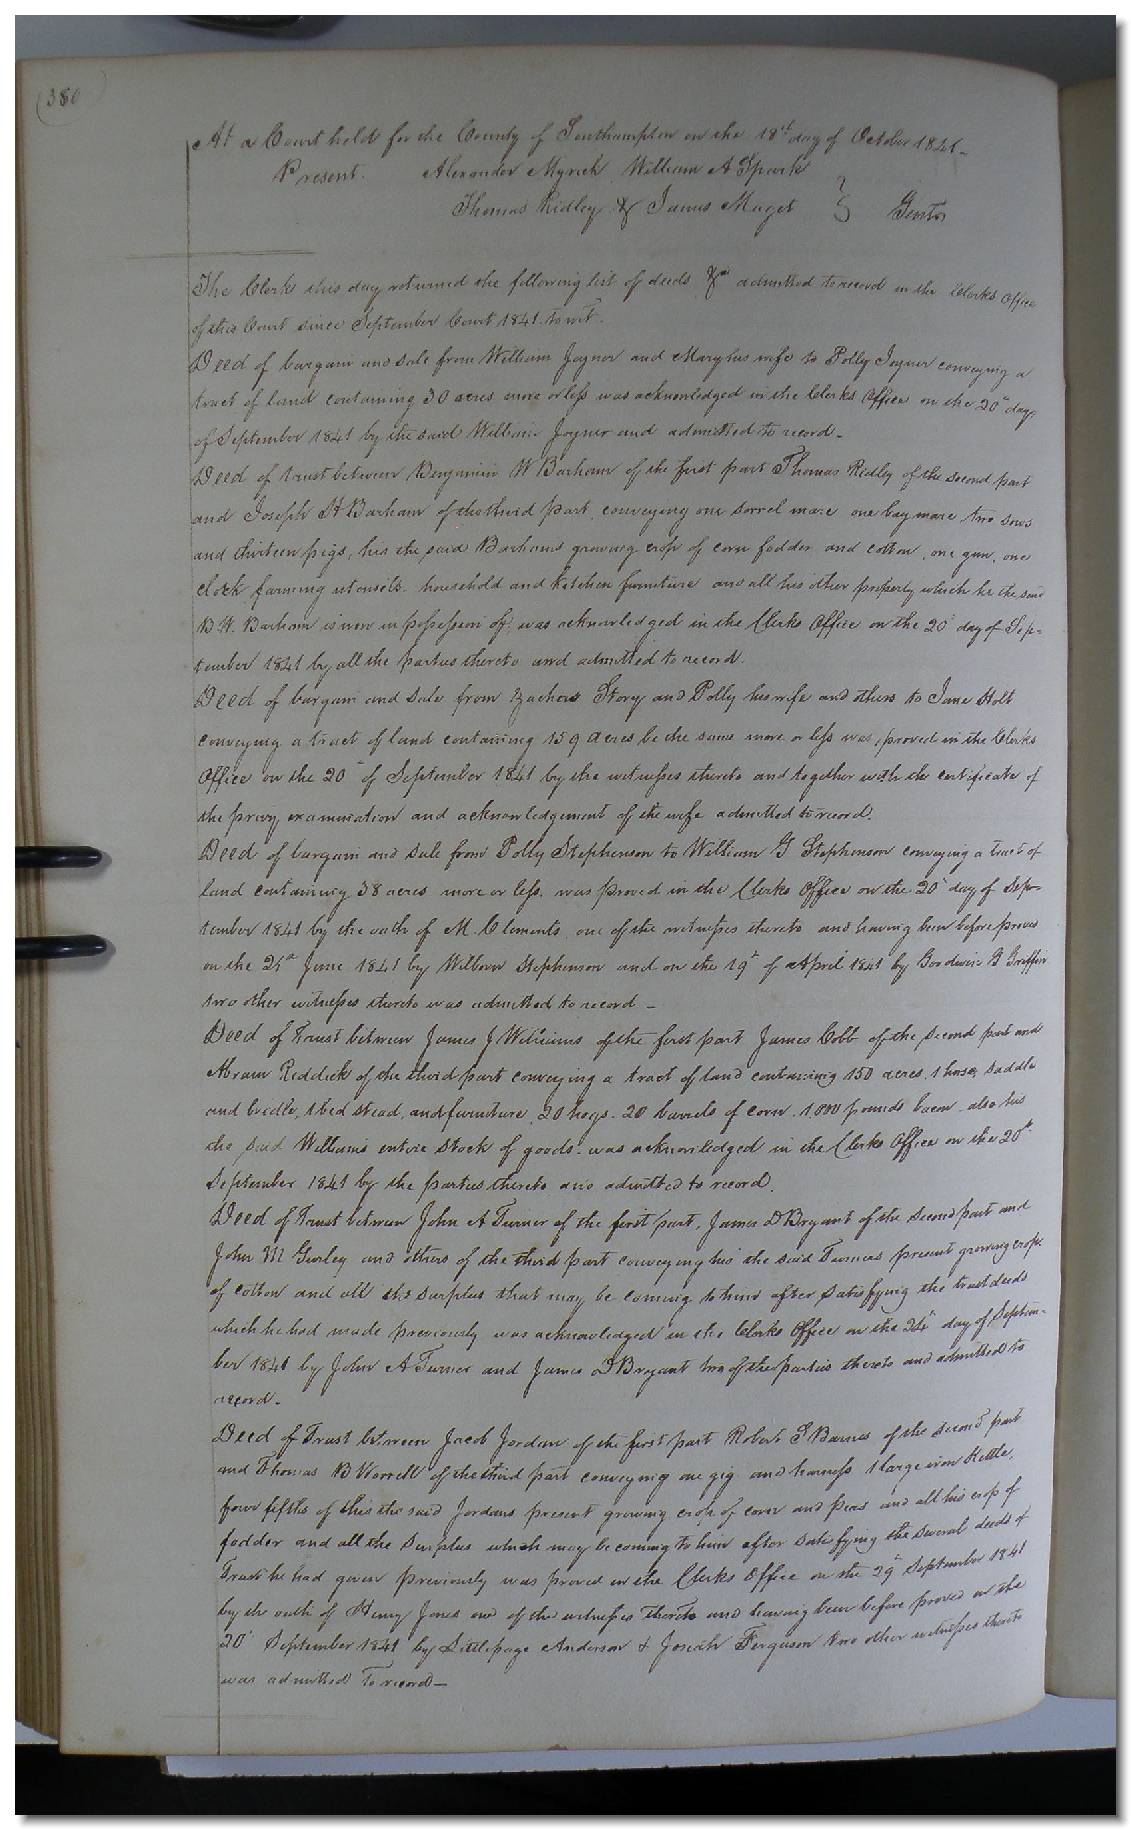 (380
At a Court held for the County of Southampton on the 18th day of October 1841 -
Present. Alexander Myrick William A Spark
Thomas Ridley & James Maget } Gents
The Clerk this day returned the following list of deeds &c admitted to record in the Clerks Office
of this Court since September Court 1841. to wit.
Deed of bargain and sale from William Joyner and Mary his wife to Polly Joyner conveying a
tract of land containing 30 acres more or less was acknowledged in the Clerks Office on the 20th day
of September 1841 by the said William Joyner and admitted to record -
Deed of trust between Benjamin W Barham of the first part Thomas Ridley of the second part
and Joseph H Barham of the third part, conveying one sorrel mare one bay mare, two sows
and thirteen pigs, his the said Barhams growing crop of corn fodder and cotton, one gun, one
clock farming utensils household and kitchen furniture and all his other property which he the said
B. W. Barham is now in possession of; was acknowledged in the Clerks Office on the 20th day of Sep-
tember 1841 by all the parties thereto and admitted to record.
Deed of bargain and sale from Story and Polly his wife and others to Jane Holt
conveying a tract of land containing 159 acres be the same more or less was, proved in the Clerks
Office on the 20th of September 1841 by the witnesses thereto and together with the certificate of
the privy examination and acknowledgement of the wife admitted to record.
Deed of bargain and sale from Polly Stephenson to William G Stephenson conveying a tract of
land containing 38 acres more or less. was proved in the Clerks Office on the 20th day of Sep-
tember 1841 by the oath of M. Clements one of the witnesses thereto and having been before proved
on the 21st June 1841 by Wilson Stephenson and on the 19th of April 1841 by Goodwin G Griffin
two other witnesses thereto was admitted to record -
Deed of Trust between James J Williams of the first part James Cobb of the second part and
Abram Reddick of the third part conveying a tract of land containing 150 acres, 1 horse, saddle
and bridle, 1 bed stead, and furniture, 20 hogs - 20 barrels of corn. 1,000 pounds bacon also his
the said Williams entire stock of goods. was acknowledged in the Clerks Office on the 20th
September 1841 by the parties thereto and admitted to record.
Deed of Trust between John A Turner of the first part, James D Bryant of the second part and
John M Gurley and others of the third part conveying his the said Turners present growing crop
of cotton and all the surplus that may be coming to him after satisfying the trust deeds
which he had made previously was acknowledged in the Clerks Office on the 24th day of Septem-
ber 1841 by John A Turner and James D Bryant two of the parties thereto and admitted to
record -
Deed of Trust between Jacob Jordan of the first part Robert S Barnes of the second part
and Thomas B Worrell of the third part conveying one gig and harness 1 large iron Kettle,
four fifths of this the said Jordans present growing crop of corn and peas and all his crop of
fodder and all the surplus which may be coming to him after satisfying the several deeds of
Trust he had given previously was proved in the Clerks Office on the 29th September 1841
by the oath of Henry Jones one of the witnesses thereto and having been before proved on the
20th September 1841 by Littlepage Anderson & Josiah Ferguson two other witnesses thereto
was admitted to record -